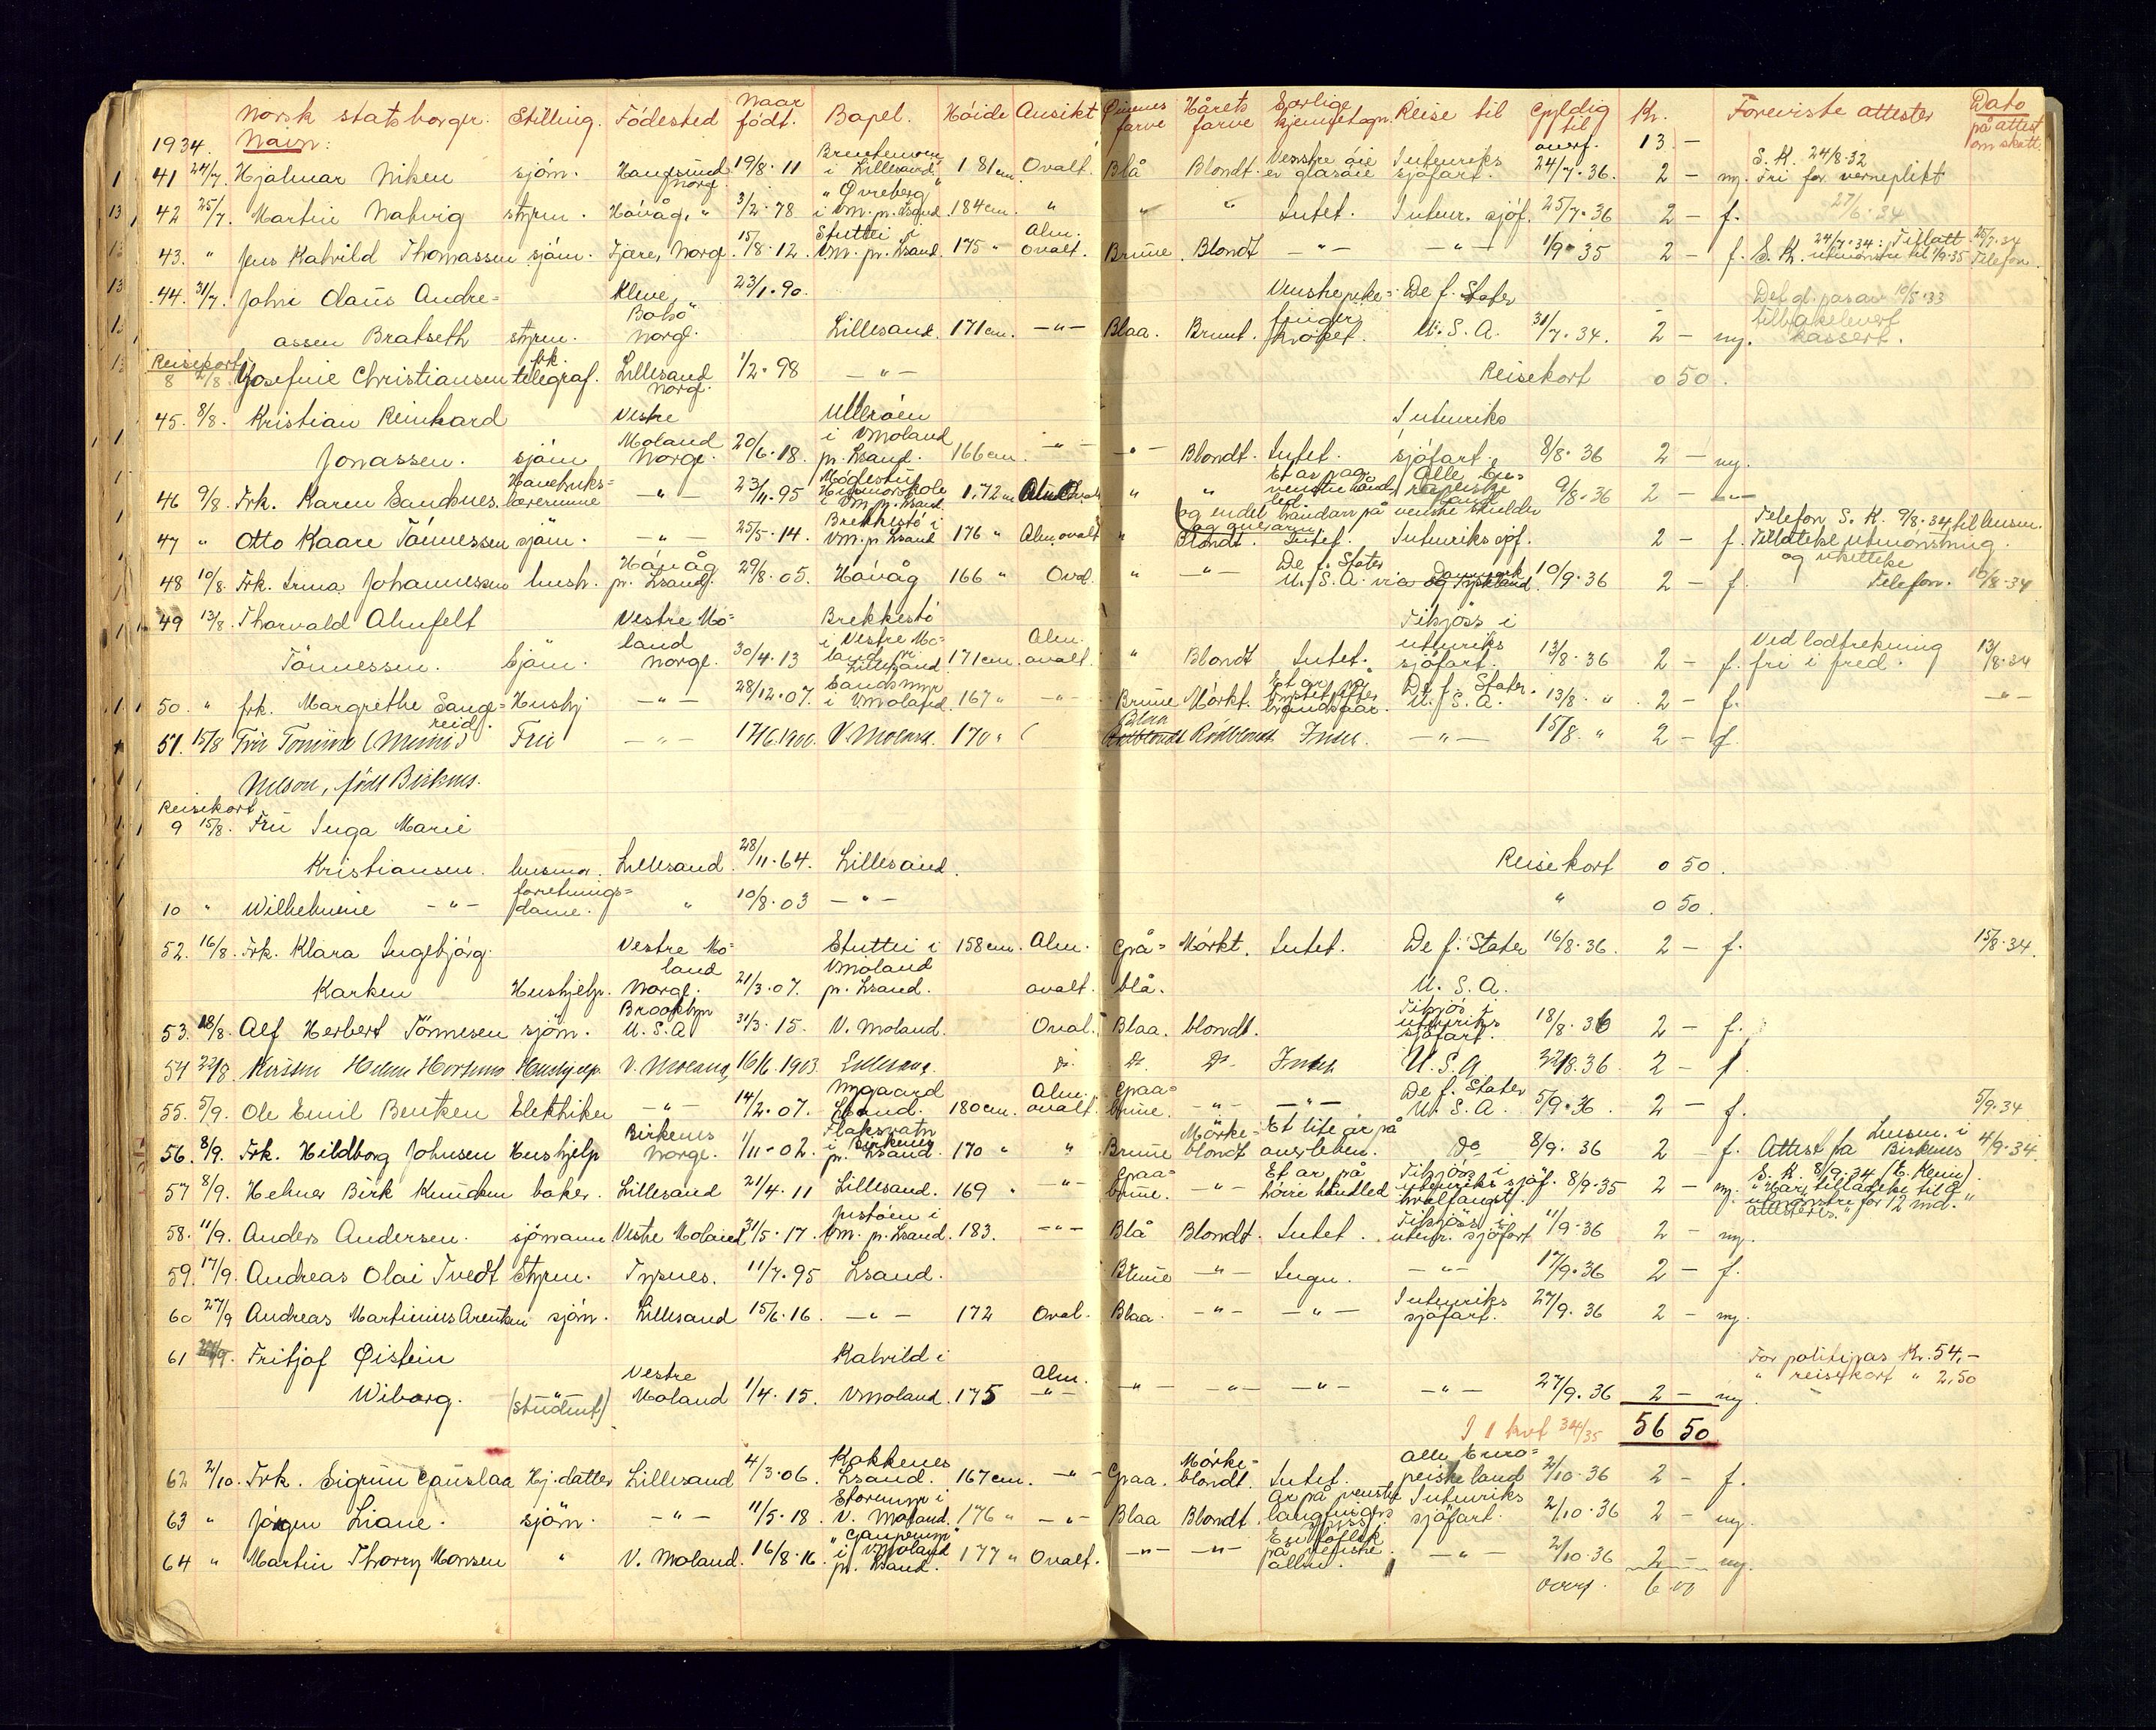 Norsk statsborger. Stilling. Födested Naar født. Bopel. Höide Ansikt Öinenes farve Hårets farve Særlige kjennetegn. Reise til Gyldig til Kr. Foreviste attester Dato på attest om skatt
1934. Navn: overf. 13.-
41 24/7. Hjalmar Niksen sjöm. Norg. 19/8.11 i Lillesand 181 cm. Ovalt. Blå Blondt. Venstre öie er glasöie Utenriks sjöfart. 24/7.36. 2 - ny. S.K. 24/8-32 Fri for verneplikt
42 25/7. Martin Natvig styrm. Håvåg, " 3/2.78 "Övreberg" i VM. pr. Lsand. 184 cm. " " " Intet. Utenr. sjöf. 25/7.36 2 - f. 27/6.34
43. " Jens Kalvild Thomassen sjöm. Fjære, Norg. 15/8.12. i VM. pr. Lsand. 175 " Alm. ovalt. Brune Blondt -"- -"- 1/9.35 2 - f. S.K. 24/7.34: Tillatt utmönstre til 1/9.35 25/7.34 Telefon.
44. 31/7. John Olaus Andre= Kleive, 23/1.90. Venstre peke= De f. Stater Det gl. pas av 10/8.33
assen Bratseth styrm. Bolsö Norg. Lillesand. 171 cm. -"- Blaa. Brunt. finger kroket. U.S.A. 31/7.34. 2 - ny. tilbakelevert kassert.
Reisekort 8 2/8. Josefine Christiansen frk. telegraf. Lillesand Norg. 1/2.98 -"- Reisekort 0 50.
45. 8/8. Kristian Reinhard Vestre Ulleröen Utenriks
Jonassen. sjöm Moland Norge. 20/6.18. i VMoland pr. Lsand. 166 cm. -"- -"- Blondt. Intet. sjöfart. 8/8.36 2 - ny.
46 9/8. Frk. Karen Sandnes. lærerinne -"- 23/11.95 i VM. pr. Lsand. 1.72 m " " Et ar paa venstre hånd= led Alle Eu= ropeiske land 9/8.36 2 - -"-
og endel brandarr på venstre skulder og overarm
47 " Otto Kaare Tönnessen sjöm. -"- 25/5.14. Brekkestö i VM. pr. Lsand 176 " Alm. ovalt " Blondt. Intet. Utenriks sjöf. 2 - f. Telefon S.K. 9/8.34 til lensm. Tillateke utmönstring.
48 10/8. Frk. Irma Johannessen hush. Håvåg pr. Lsand. 29/8.05. Håvåg 166 " Oval. " -"- De f. Stater U.S.A. via Danmark og Tyskland. 10/9.36 2 - f. Telefon. 10/8.34
49 13/8. Thorvald Almfelt Vestre Mo= Brekkestö Tilsjöss i
Tönnessen. Sjöm. land Norge. 30/4.13 i Vestre Mo= land pr. Lillesand. 171 cm. Alm. ovalt. " Blondt Intet. utenriks sjöfart. 13/8.36 2 - f. Ved lodtrekning fri i fred. 13/8.34
50. " frk. Margrethe Sange= reid. Hushj -"- 28/12.07. i VMoland. 167 " -"- Brune Mörkt. De f. Stater. U.S.A. 13/8. " 2 - f. -"-
51. 15/8 Fru Tomine (Mimi) Fru -"- 17/6.1900. V. Moland. 170 " Blaa Rödblondt Rödblondt Intet. -"- 15/8. " 2 - f.
Nelson, född Birknes.
Reisekort 9 15/8. Fru Inga Marie
Kristiansen. husmor. Lillesand. 28/11.64. Lillesand. Reisekort 0 50.
10 " Wilhelmine -"- forretnings= dame. " 10/8.03 -"- " 0 50.
52. 16/8. Frk. Klara Ingebjörg. Vestre Mo= i 158 cm. Alm. Grå= Mörkt. Intet. De f. Stater 16/8.36. 2 - f. 15/8.34.
Karken Hushjelp. land Norge. 21/3.07. VMoland pr. Lsand. ovalt. blå. U.S.A.
53. 18/8. Alf Herbert Tönnesen sjöm. Brooklyn U.S.A 31/3.15. V. Moland. Oval. Blaa. blondt. Tilsjös i utenriks sjöfart. 18/8.36 2 - f.
54 22/8 Hushjelp. V. Moland, 16/6.1903. Lillesand. Do. Do. Do. Intet U.S.A. 22/8.36. 2 - f.
55. 5/9. Ole Emil Bentsen Elektriker -"- 14/2.07. Nygaard Lsand. 180 cm. Alm. ovalt. Graa= brune. -"- -"- De f. Stater U.S.A. 5/9.36. 2 - f. 5/9.34
56. 8/9. Frk. Hildborg Johnsen Hushjelp Birkenes Norge. 1/11.02. Flaksvatn i Birkenes pr. Lsand. 170 " " Brune Mörke= blondt Et lite ar på overleben. Do 8/9.36 2 - f. Attest fra Lensm. i Birkenes 4/9.34.
57 8/9. Helmer Birk Knudsen baker. Lillesand 21/4.11 Lillesand. 169 " -"- Graa= brune. -"- Et ar på höire håndled Tilsjöss i utenriks sjöf. hvalfangst. 8/9.35 2 - ny. S.K. 8/9.34
58. 11/9. Anders Andersen. sjömann Vestre Moland 31/5.17. Justöen i VM. pr. Lsand. 183. -"- Blå Blondt. Intet. Tilsjöss i utenr. sjöfart 11/9.36 2 - ny.
59. 17/9. Andreas Olai Tvedt Styrm. Tysnes. 11/7.95 Lsand. Brune -"- Ingen. -"- 17/9.36 2 - f.
60 27/9 Andreas Martinius Arentsen sjöm. Lillesand 15/6.16. -"- 172 Oval. Blaa. -"- -"- Utenriks sjöfart. 27/9.36 2 - ny.
61 Fritjof Øistein Vestre Kalvild i For politipas Kr. 54,-
Wiborg. -"- (student) Moland 1/4.15. VMoland. 175 Alm. -"- -"- -"- -"- -"- 27/9.36 2 - ny. " reisekort " 2,50
I 1 kvt 34/35 56 50
62 2/10. Frk. Sigrun Gauslaa Hj. datter Lillesand 4/3.06. Kokkenes Lsand. 167 cm. -"- Graa. Mörke= blondt. Intet. Alle Euro= peiske land 2/10.36 2 - f.
63 " Jörgen Liane. sjöm. -"- 11/5.18. i V. Moland. 176 " -"- Blaa Blondt. Ar på venstre langfinger Utenriks sjöfart. 2/10.36 2 - ny.
64 " Martin Thorry Monsen " V. Moland. 16/8.16. i VMoland pr. Lsand. 177 " Ovalt. -"- -"- på venstre -"- 2/10.36 2 - ny.
overf. 6 00